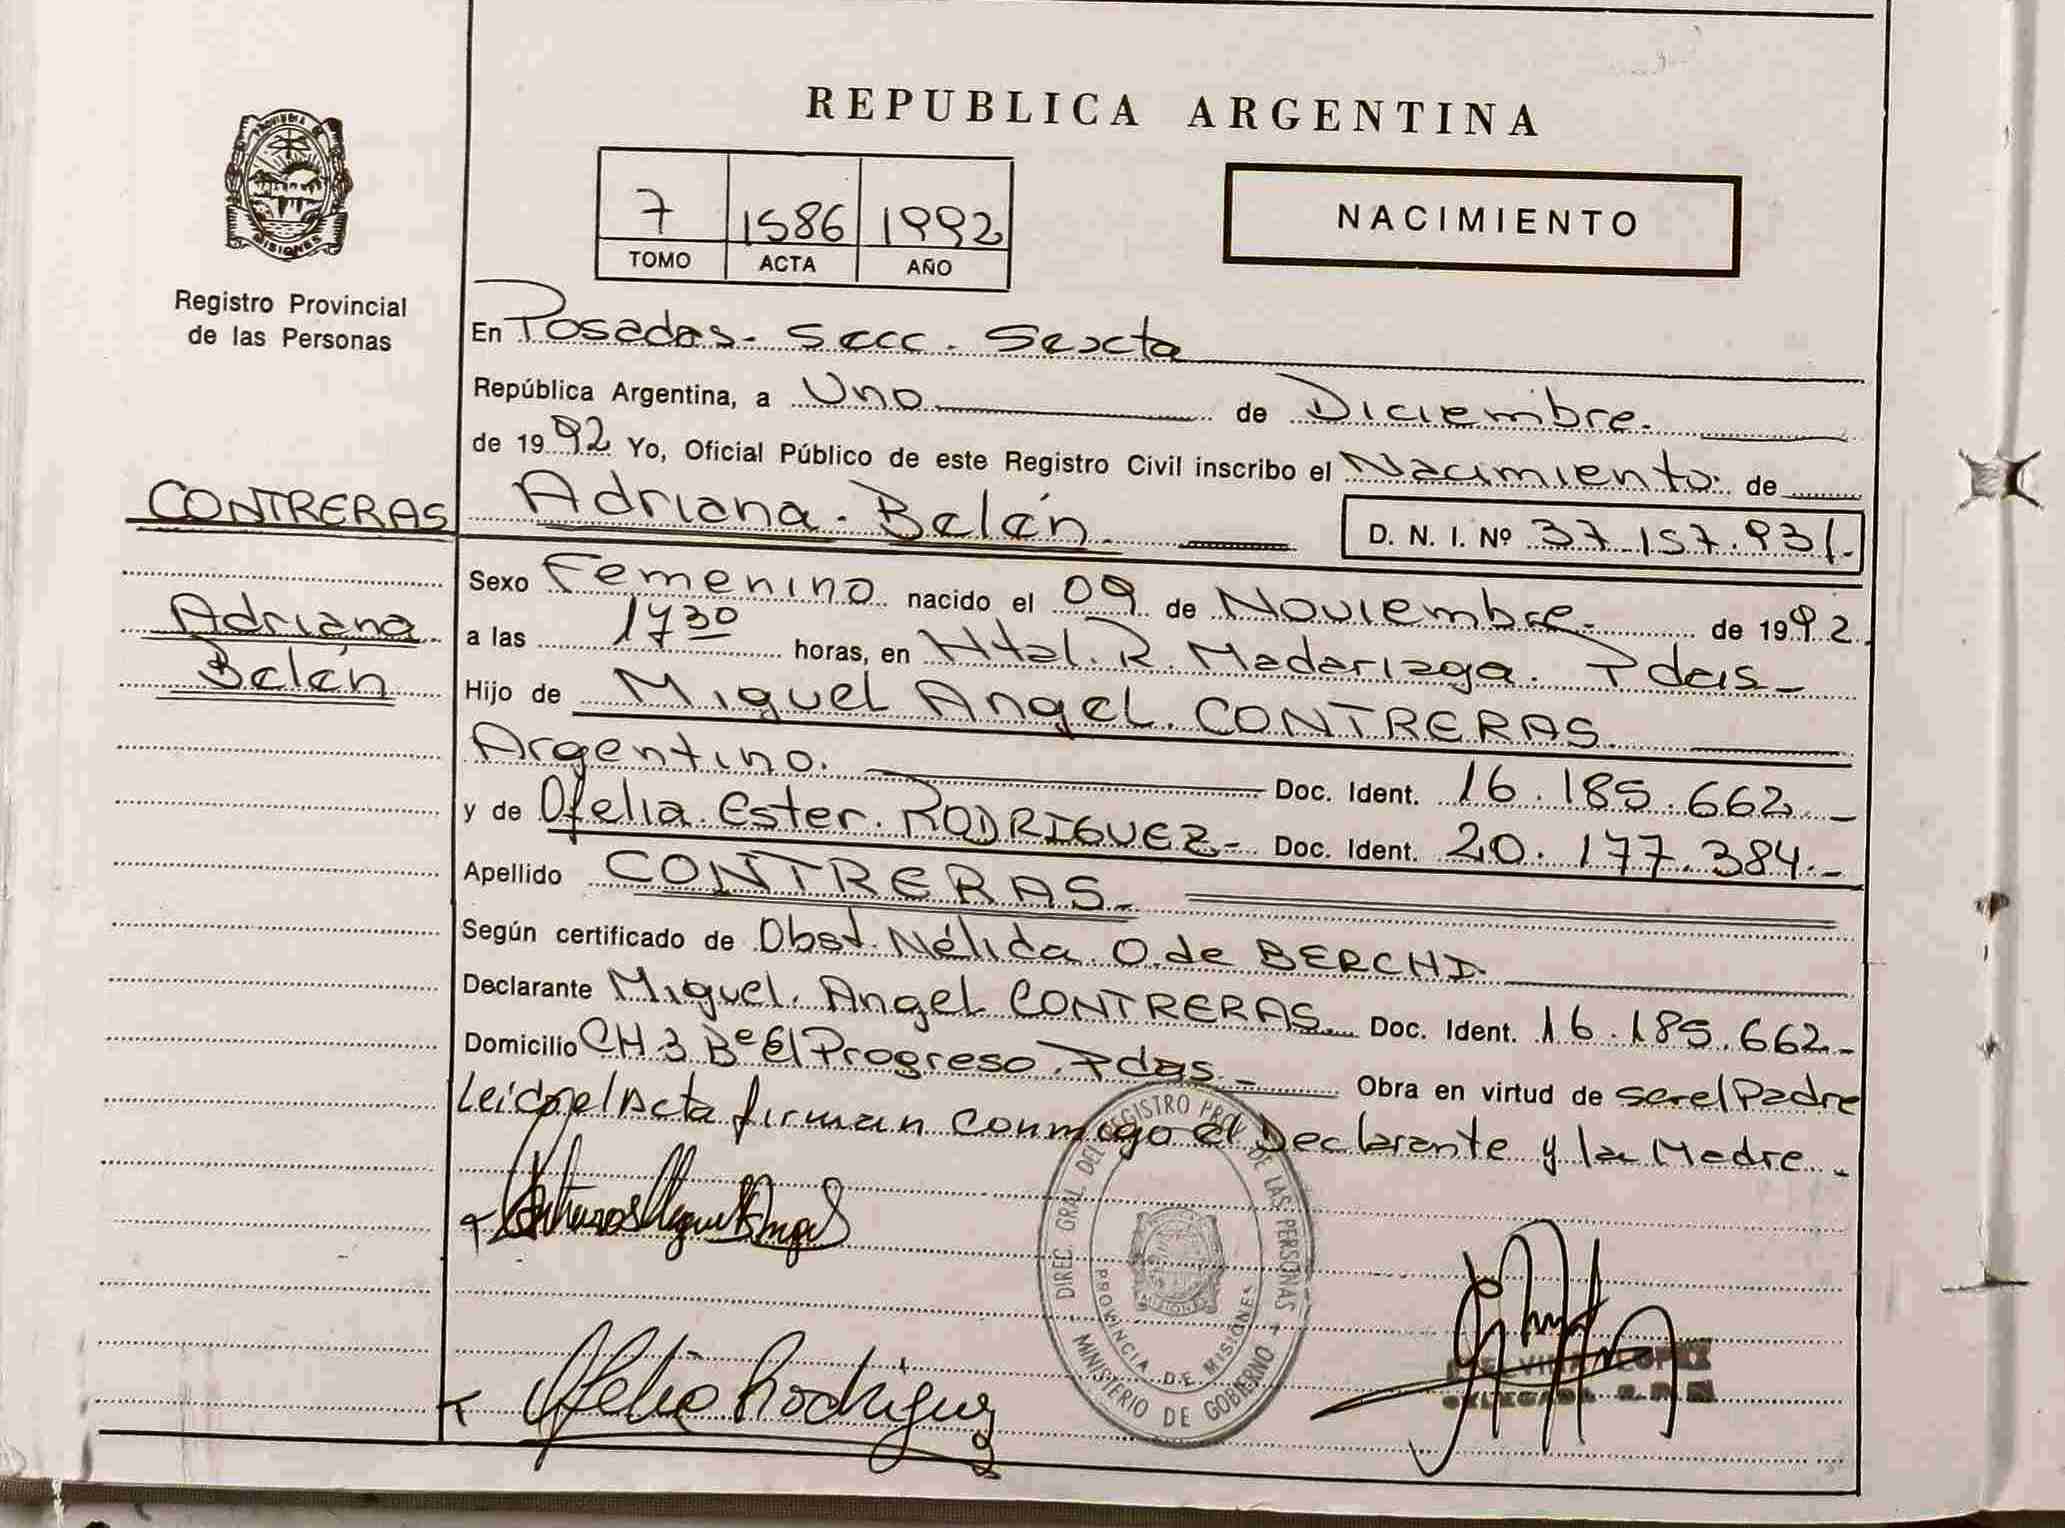 REPUBLICA ARGENTINA
PROVINCIA DE
MISIONES
Registro Provincial
de las Personas
7 1586 1992
TOMO ACTA AÑO
NACIMIENTO
En Posadas - Secc. Sexta
República Argentina, a Uno de Diciembre.
de 1992 Yo, Oficial Público de este Registro Civil inscribo el Nacimiento. de
CONTRERAS
Adriana. Belén.
D. N. I. Nº 37.157.931.-
Adriana
Belén
Sexo Femenino nacido el 09 de Noviembre. de 1992.
a las 17 30 horas, en Htal. R. Madariaga. Pdas-
Hijo de Miguel Angel. CONTRERAS.
Argentino. Doc. Ident. 16.185.662.-
y de Ofelia. Ester. RODRIGUEZ.- Doc. Ident. 20.177.384.-
Apellido CONTRERAS.-
Según certificado de Obst. Nélida O. de BERCHI.
Declarante Miguel. Angel CONTRERAS. Doc. Ident. 16.185.662.-
Domicilio CH.3 Bº El Progreso. Pdas.- Obra en virtud de ser el Padre
Leido el Acta firman conmigo el Declarante y la Madre.-
Contreras Miguel Angel
DIREC. GRAL. DEL REGISTRO PROV. DE LAS PERSONAS
PROVINCIA DE MISIONES
MISIONES
MINISTERIO DE GOBIERNO
Ofelia Rodriguez
LOPEZ
DELEGADA